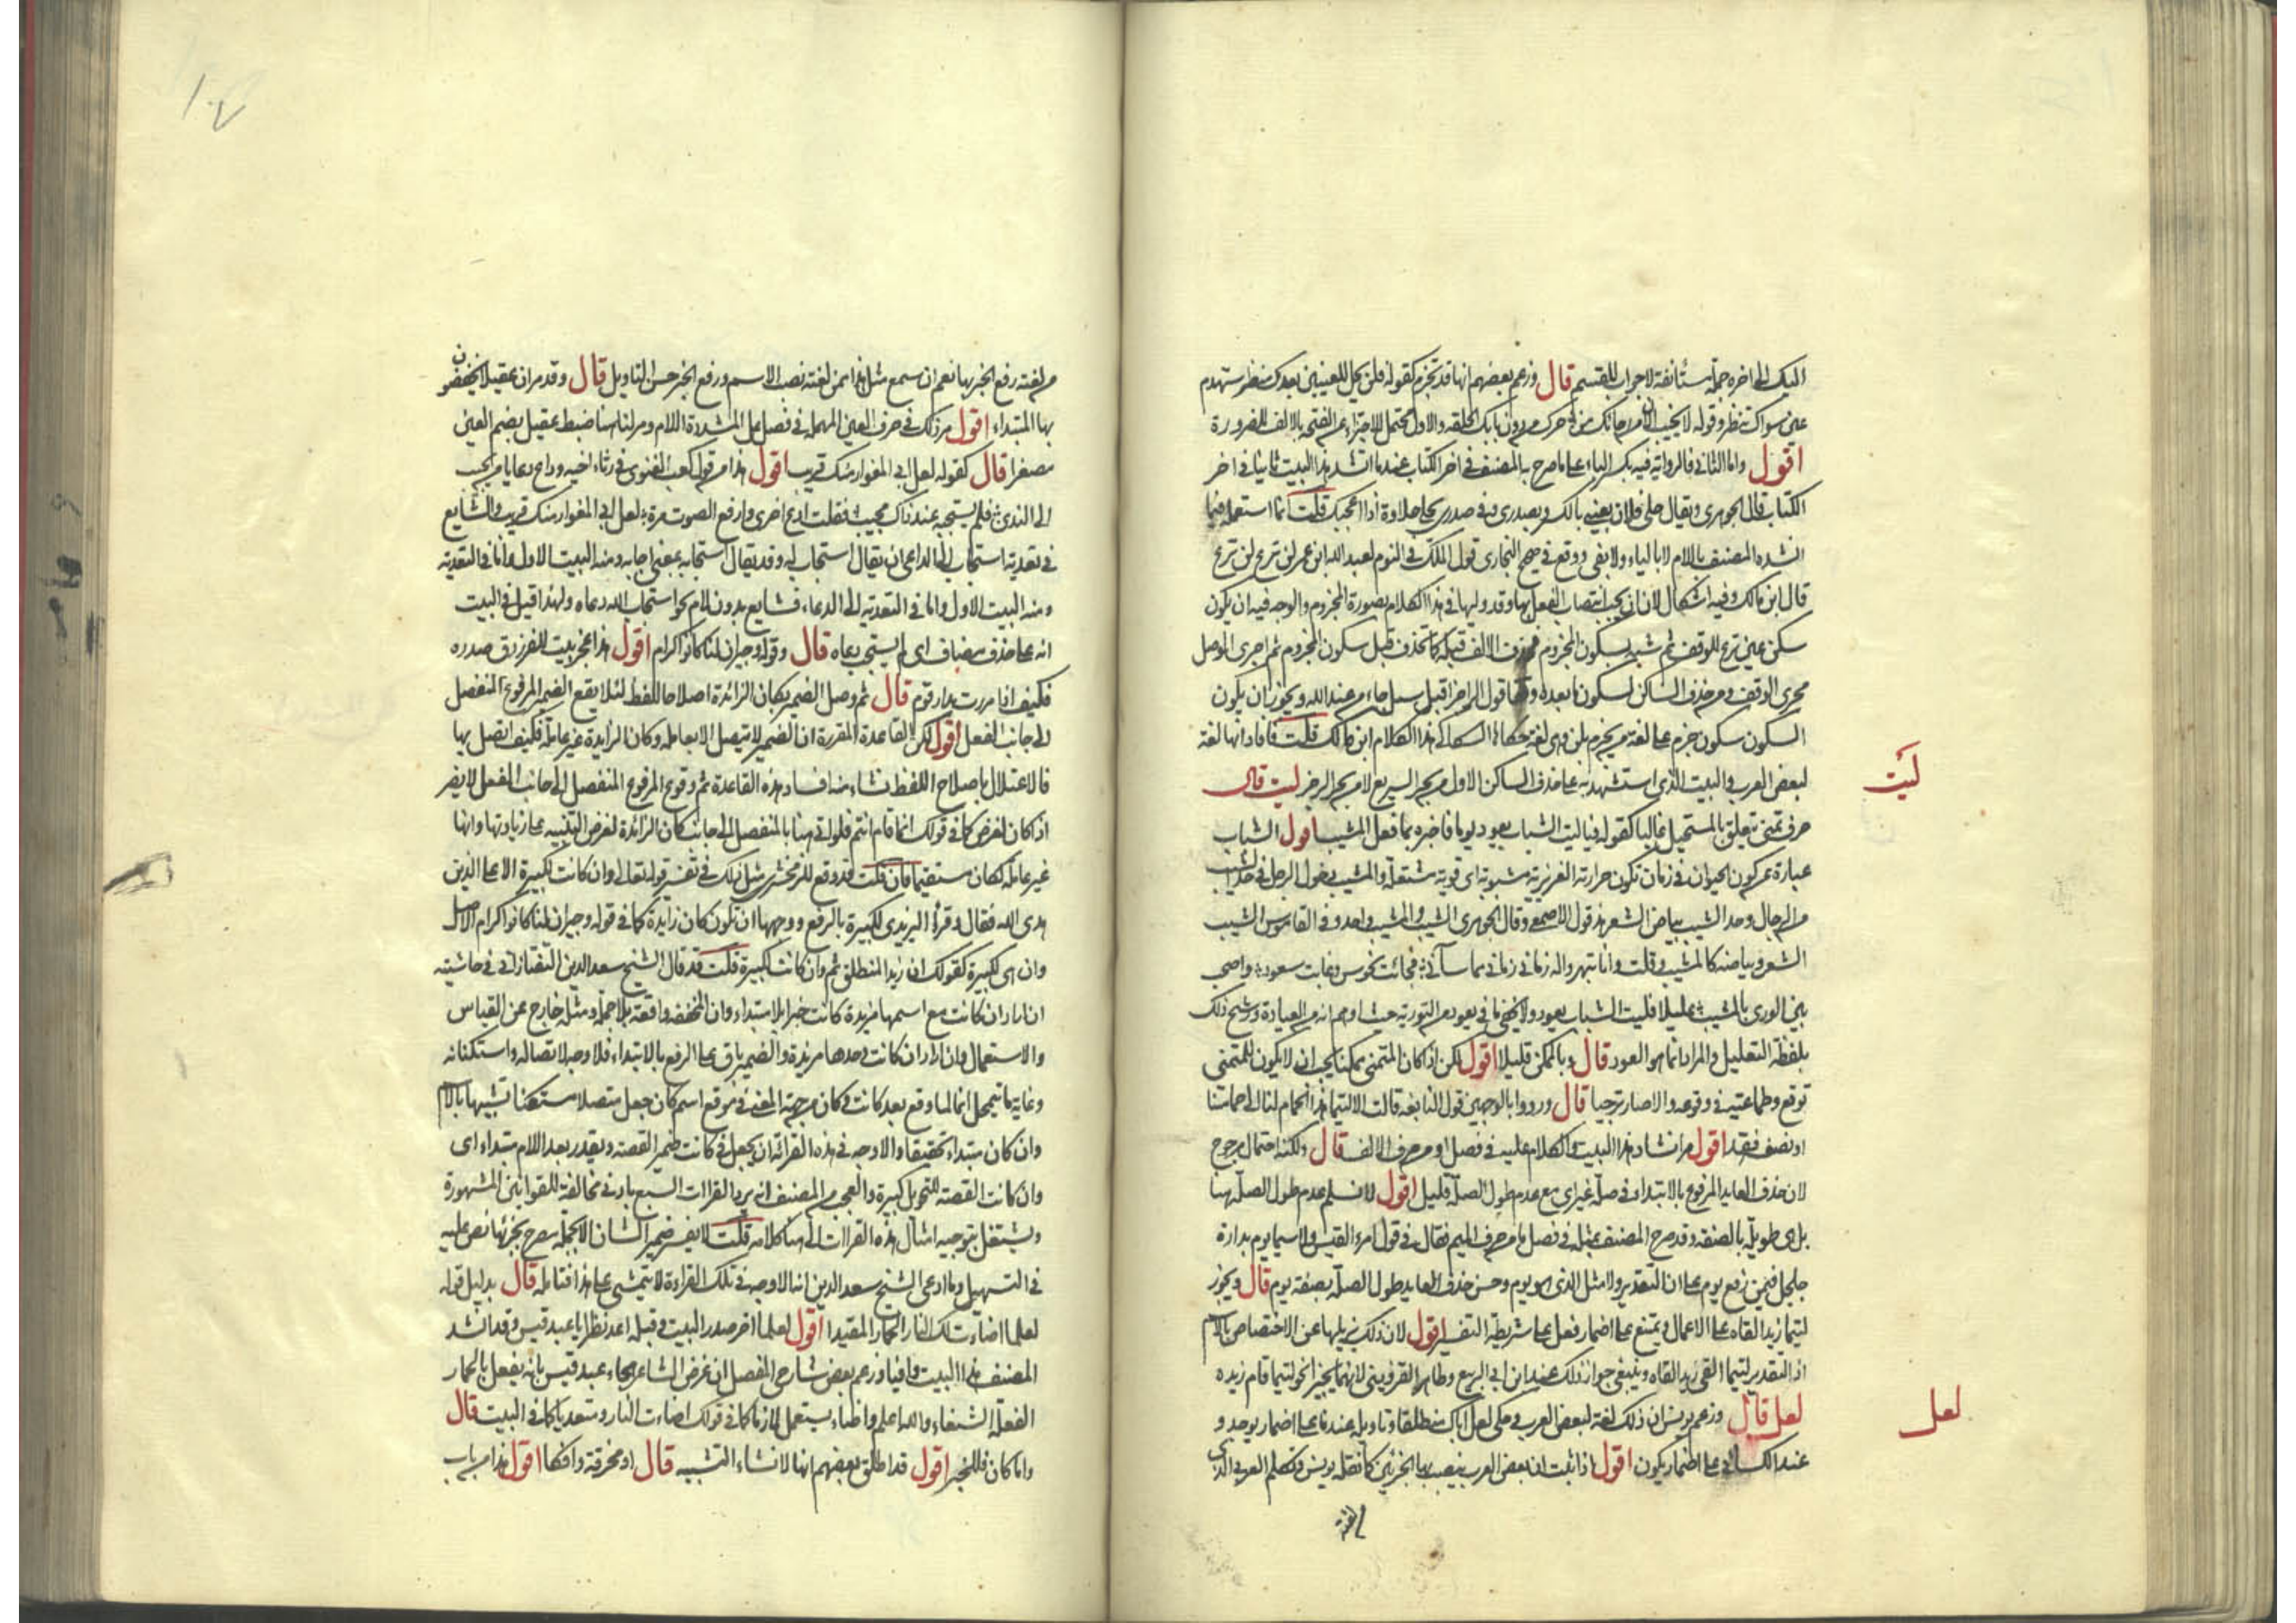 اليك الى اخره جملة مستأنفة لا جواب للقسم قال وزعم بعضهم انها قد تجزم كقوله فلن يحل للعينين بعدك منظر
عن سواك تنظر وقوله لا يخب الان من رجائك من حرك من دون بابك الحلقة والاول محتمل للاجتزاء عن الفتحة بالالف للضرورة
اقول واما الثاني فالرواية فيه بكسر الباء على ما صرح به المصنف في اخر الكتاب عندما انشد هذا البيت ثانيا في اخر
الكتاب قال الجوهري ويقال حلي فلان بعيني بالكسر وبصدري وفي صدري يحلى حلاوة اذا اعجبك قلت انما استعمله فيما
انشده المصنف باللام لا بالباء ولا بفي ووقع في صحيح البخاري قول الملك في النوم لعبد الله ابن عمر لن ترع لن ترع
قال ابن مالك وفيه اشكال لان لن يجب انتصاب الفعل بها وقد وليها في هذا الكلام بصورة المجزوم والوجه فيه ان يكون
سكن عين ترع للوقف ثم شبه بسكون المجزوم فحذف الالف قبله كما تحذف قبل سكون المجزوم ثم اجرى الوصل
مجرى الوقف ومن حذف الساكن لسكون ما بعده وقفا قول الراجز اقبل سيل جاء من عند الله ويجوز ان يكون
السكون سكون جزم على لغة من يجزم بلن وهي لغة حكاها الكسائي هذا كلام ابن مالك قلت فافاد انها لغة
لبعض العرب والبيت الذي استشهد به على حذف الساكن الاول من بحر السريع لا من بحر الرجز ليت قال
ليت
حرف تمني يتعلق بالمستحيل غالبا كقوله فيا ليت الشباب يعود يوما فاخبره بما فعل المشيب اقول الشباب
عبارة عن كون الحيوان في زمان تكون حرارته الغريزية مشبوبة اي قوية مشتعلة والمشيب دخول الرجل في حد الشيب
من الرجال وحد الشيب بياض الشعر هذا قول الاصمعي وقال الجوهري الشيب والمشيب واحد وفي القاموس الشيب
الشعر وبياضه كالمشيب قلت وانا
بلفظة التعليل والمراد انما هو العود قال وبالممكن قليلا اقول لكن اذا كان المتمنى ممكنا يجب ان لا يكون للمتمني
توقع وطماعية في وقوعه والا صار ترجيا قال ورووا بالوجهين قول النابغة قالت الا ليتما هذا الحمام لنا الى حمامتنا
او نصفه فقد اقول مر انشاد هذا البيت والكلام عليه في فصل او من حرف الالف قال ولكنه احتمال مرجوح
لان حذف العايد المرفوع بالابتداء في صلة غير اي مع عدم طول الصلة قليل اقول لا نسلم عدم طول الصلة هنا
بل هي طويلة بالصفة وقد صرح المصنف بمثله في فصل ما من حرف الميم فقال في قول امرء القيس ولا سيما يوم بدارة
جلجل فيمن رفع يوم على ان التقدير ولا مثل الذي هو يوم وحسن حذف العايد طول الصلة بصفة يوم قال ويجوز
ليتما زيدا القاه على الاعمال ويمتنع على اضمار فعل على شريطة التفسير اقول لان ذلك يزيلها عن الاختصاص بالاسم
اذ التقدير ليتما القى زيدا القاه وينبغي جواز ذلك عند ابن ابي الربيع وطاهر القزويني لانهما يجيزان نحو ليتما قام زيد
لعل قال وزعم يونس ان ذلك لغة لبعض العرب وحكي لعل اباك منطلقا وتاويله عندنا على اضمار يوجد و
لعل
عند الكسائي على اضمار يكون اقول اذا ثبت ان بعض العرب ينصب بها الجزئين كما نقله يونس
من لغته
من لغته رفع الخبر بها نعم ان سمع مثل هذا ممن لغته نصب الاسم ورفع الخبر حسن التاويل قال وقد مر ان عقيلا يخفضون
بها المبتداء اقول مر ذلك في حرف العين المهملة في فصل عل المشددة اللام ومر لنا هنا ضبط عقيل بضم العين
مصغرا قال كقوله لعل ابي المغوار منك قريب اقول هذا من قول كعب الغنوي في رثاء اخيه وداع دعا يا من يجيب
الى الندى فلم يستجبه عند ذاك مجيب فقلت ادع اخرى وارفع الصوت مرة لعل ابي المغوار منك قريب والشايع
في تعدية استجاب الى الداعي ان يقال استجاب له وقد يقال استجابه بمعنى اجابه ومنه البيت الاول واما في التعدية
ومنه البيت الاول واما في التعدية الى الدعاء فشايع بدون لام نحو استجاب الله دعاه ولهذا قيل في البيت
انه على حذف مضاف اي لم يستجب دعاه قال وقوله وجيران لنا كانوا كرام اقول هذا عجز بيت للفرزدق صدره
فكيف اذا مررت بدار قوم قال ثم وصل الضمير بكان الزائدة اصلاحا للفظ لئلا يقع الضمير المرفوع المنفصل
الى جانب الفعل اقول لكن القاعدة المقررة ان الضمير لا يتصل الا بعامله وكان الزايدة غير عاملة فكيف اتصل بها
فالاعتلال باصلاح اللفظ نشاء منه افساد هذه القاعدة ثم وقوع المرفوع المنفصل الى جانب الفعل لا يضر
اذا كان لغرض كما في قولك انما قام انتم فلو اتى هنا بالمنفصل الى جانب كان الزائدة لغرض التنبيه على زيادتها وانها
غير عاملة لكان مستقيما فان قلت قد وقع للزمخشري مثل ذلك في تفسير قوله تعالى وان كانت لكبيرة الا على الذين
هدى الله فقال وقرأ اليزيدي لكبيرة بالرفع ووجهها ان تكون كان زايدة كما في قوله وجيران لنا كانوا كرام الاصل
وان هي لكبيرة كقولك ان زيد لمنطلق ثم وان كانت لكبيرة قلت قد قال الشيخ سعد الدين التفتازاني في حاشيته
ان اراد ان كانت مع اسمها مزيدة كانت خبرا بلا مبتداء وان المخففة واقعة بلا جملة ومثله خارج عن القياس
والاستعمال وان اراد ان كانت وحدها مزيدة والضمير باق على الرفع بالابتداء فلا وجه لاتصاله واستكنانه
وغاية ما يتمحل انه لما وقع بعد كانت وكان من جهة المعنى في موقع اسم كان جعل متصلا مستكنا تشبيها بالاسم
وان كان مبتداء تحقيقا والاوجه في هذه القرائة ان يجعل في كانت ضمير القصة ويقدر بعد اللام مبتداء اي
وان كانت القصة للتحويل كبيرة والعجب من المصنف انه يرد القراات السبع بادنى مخالفة للقوانين المشهورة
ويشتغل بتوجيه امثال هذه القراات الى هنا كلامه قلت لا يفسر ضمير الشان الا بجملة مصرح بجزئيها نص عليه
في التسهيل وما ادعى الشيخ سعد الدين انه الاوجه في تلك القراءة لا يتمشى على هذا فتامله قال بدليل قوله
لعلما اضاءت لك النار الحمار المقيدا اقول لعلما اخر صدر البيت وقبله اعد نظرا يا عبد قيس وقد انشد
المصنف هذا البيت وافيا وزعم بعض شارحي المفصل ان غرض الشاعر هجاء عبد قيس بانه يفعل بالحمار
الفعلة الشنعاء والله اعلم واضاء يستعمل لازما كما في قولك اضاءت النار ومتعديا كما في البيت قال
واما كان فللخبر اقول قد اطلق بعضهم انها لانشاء التشبيه قال او مخرقة وافكا اقول هذا من باب